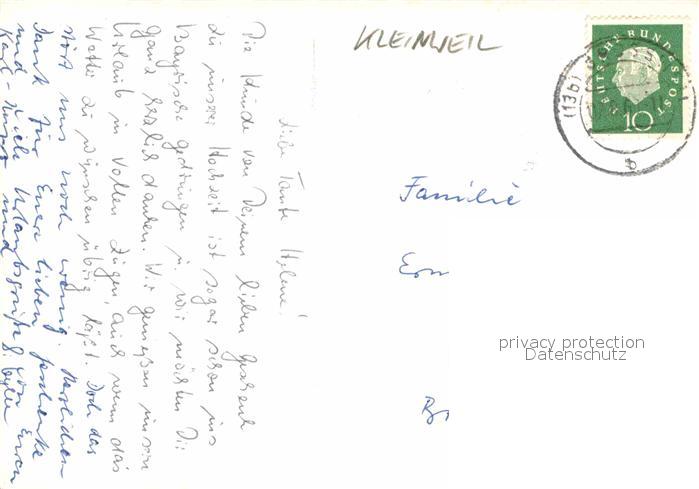 Liebe Tante Helene!
Die Kunde von Deinem lieben Geschenk
zu unserer Hochzeit ist sogar schon ins
Bayrische gedrungen u. wir möchten Dir
ganz herzlich danken. Wir genießen unseren
Urlaub in vollen Zügen, auch wenn das
Wetter zu wünschen übrig läßt. Doch das
stört uns noch wenig. Herzlichen
Dank für Eure lieben Geschenke
und viele Urlaubsgrüße von Euren
Karl- und
KLEINWEIL
DEUTSCHE BUNDESPOST
10
(13b)
Familie
Ern
privacy protection
Datenschutz